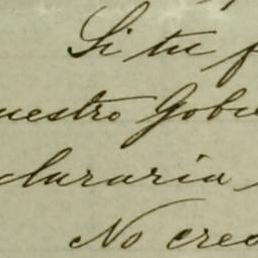 Si tu f
uestro Gobi
clararia
No creo